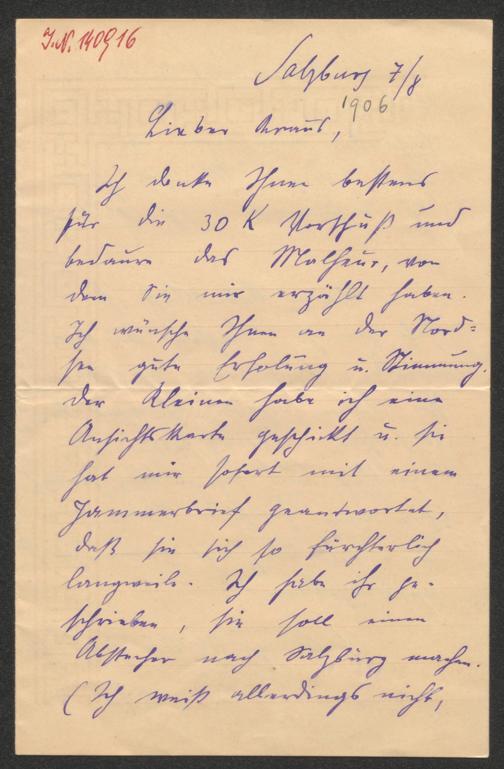 J.N. 140916
Salzburg 7/8
1906
Lieber Kraus,
Ich danke Ihnen bestens
für die 30 K Vorschuß und
bedaure das Malheur, von
dem Sie mir erzählt haben.
Ich wünsche Ihnen an der Nord=
see gute Erholung u. Stimmung.
Der Kleinen habe ich eine
Ansichtskarte geschickt u. sie
hat mir sofort mit einem
Jammerbrief geantwortet,
daß sie sich so fürchterlich
langweile. Ich habe ihr ge-
schrieben, sie soll einen
Abstecher nach Salzburg machen.
(Ich weiß allerdings nicht,